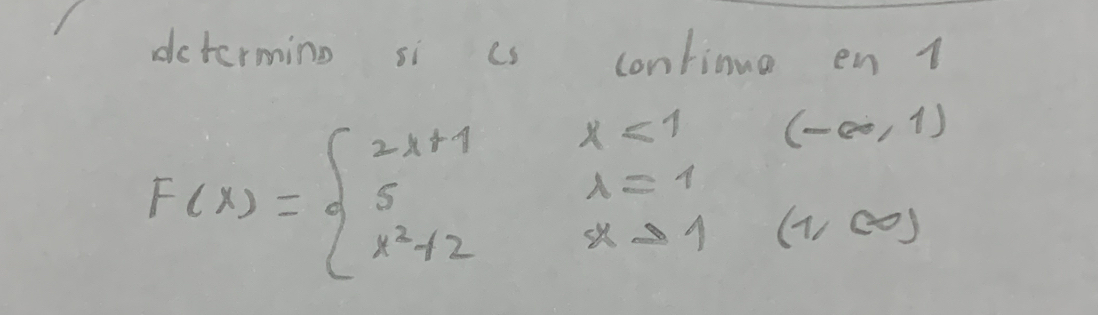 determino si es continuo en 1
F(x) = { 2x+1 x < 1 (-∞, 1)
5 x = 1
x²+2 x > 1 (1, ∞)